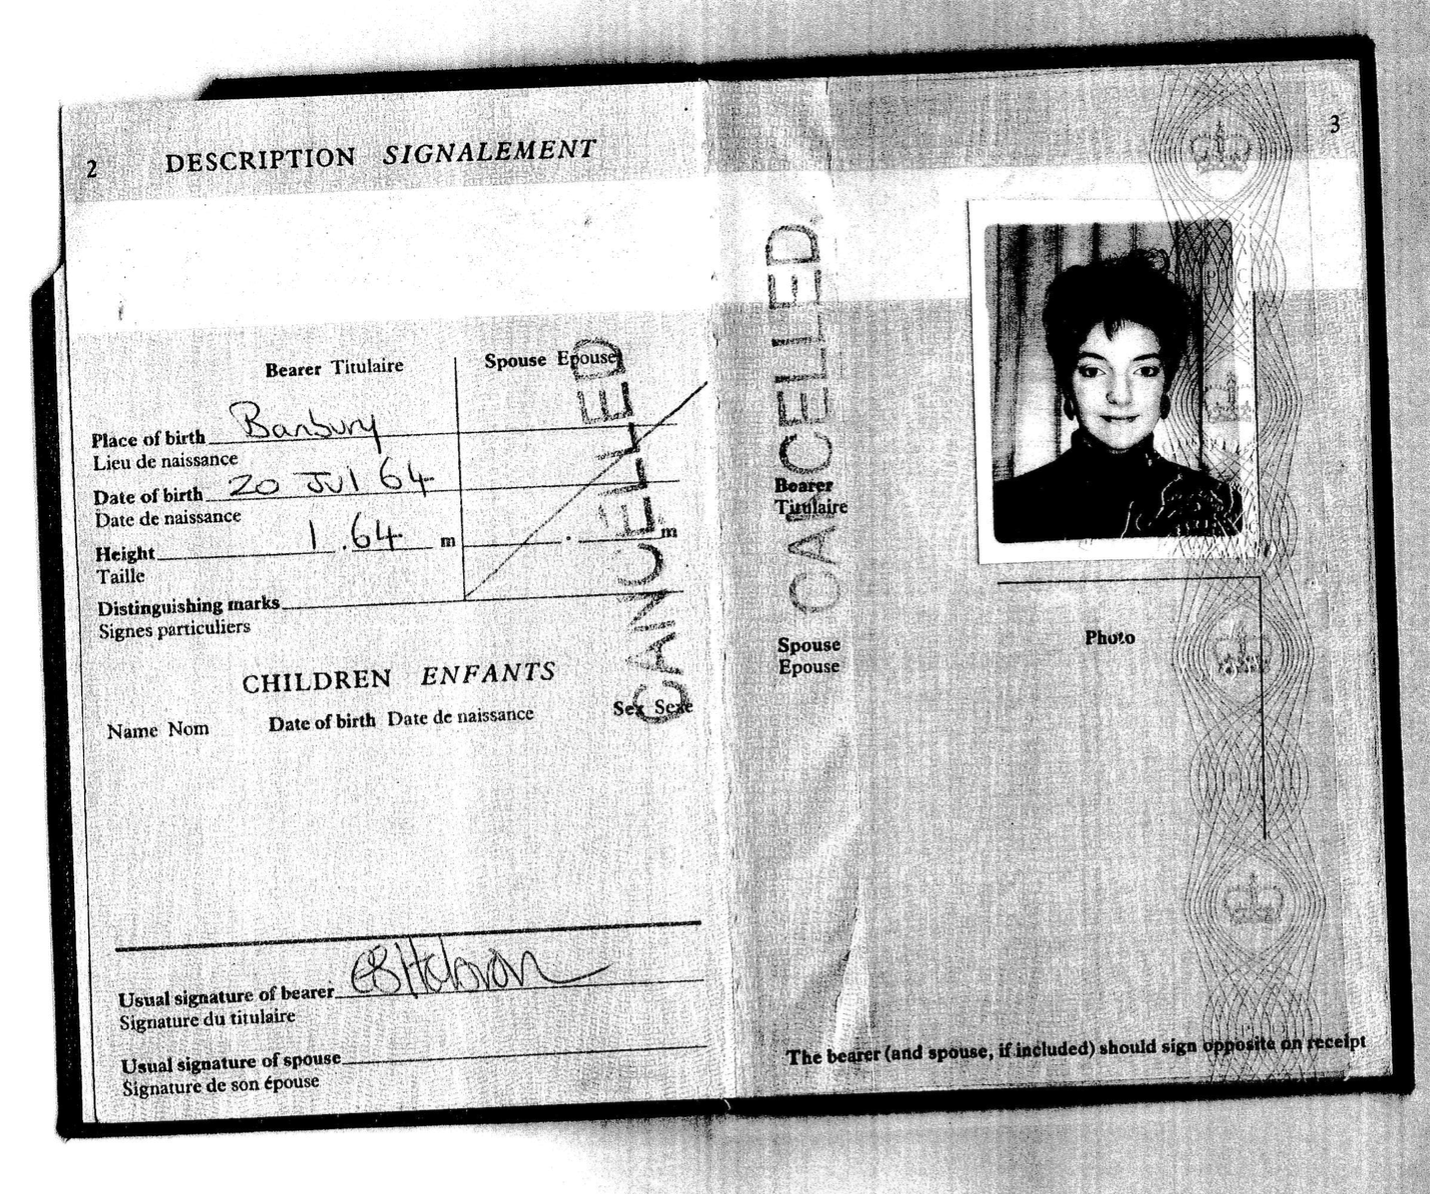 2 DESCRIPTION SIGNALEMENT
Bearer Titulaire Spouse Epouse
Place of birth Banbury
Lieu de naissance
Date of birth 20 JUl 64
Date de naissance
Height 1.64 m . m
Taille
Distinguishing marks
Signes particuliers
CANCELLED
CHILDREN ENFANTS
Name Nom Date of birth Date de naissance Sex Sexe
Usual signature of bearer
Signature du titulaire
Usual signature of spouse
Signature de son épouse
3
CANCELLED
Bearer
Titulaire
Spouse
Epouse
Photo
The bearer (and spouse, if included) should sign opposite on receipt